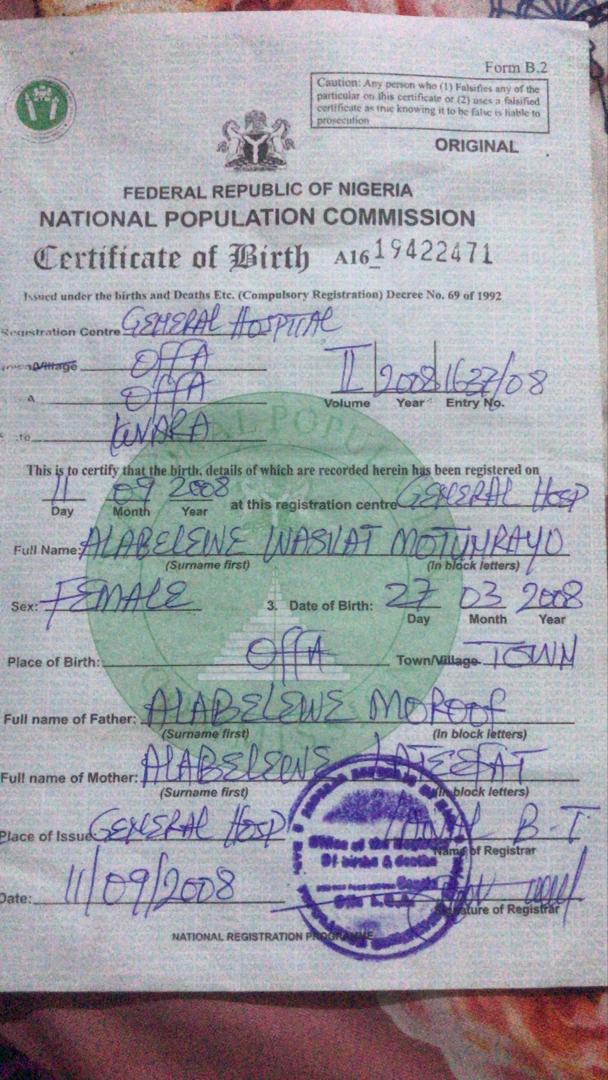 Form B.2
Caution: Any person who (1) Falsifies any of the
particular on this certificate or (2) uses a falsified
certificate as true knowing it to be false is liable to
prosecution
ORIGINAL
FEDERAL REPUBLIC OF NIGERIA
NATIONAL POPULATION COMMISSION
Certificate of Birth A16 19422471
Issued under the births and Deaths Etc. (Compulsory Registration) Decree No. 69 of 1992
Registration Centre GENERAL HOSPITAL
Village OFFA
OFFA II 2008 1637/08
Volume Year Entry No.
KWARA
This is to certify that the birth, details of which are recorded herein has been registered on
11 09 2008 at this registration centre GENERAL HOSP
Day Month Year
Full Name: ALABELEWE WASILAT MOTUNRAYO
(Surname first) (In block letters)
Sex: FEMALE 3. Date of Birth: 27 03 2008
Day Month Year
Place of Birth: OFFA Town/Village TOWN
Full name of Father: ALABELEWE MOROOF
(Surname first) (In block letters)
Full name of Mother: ALABELEWE LATEEFAT
(Surname first) (In block letters)
Place of Issue GENERAL HOSP B-T
Name of Registrar
Office of the
Of births & deaths
Date: 11/09/2008
Signature of Registrar
NATIONAL REGISTRATION PROGRAMME